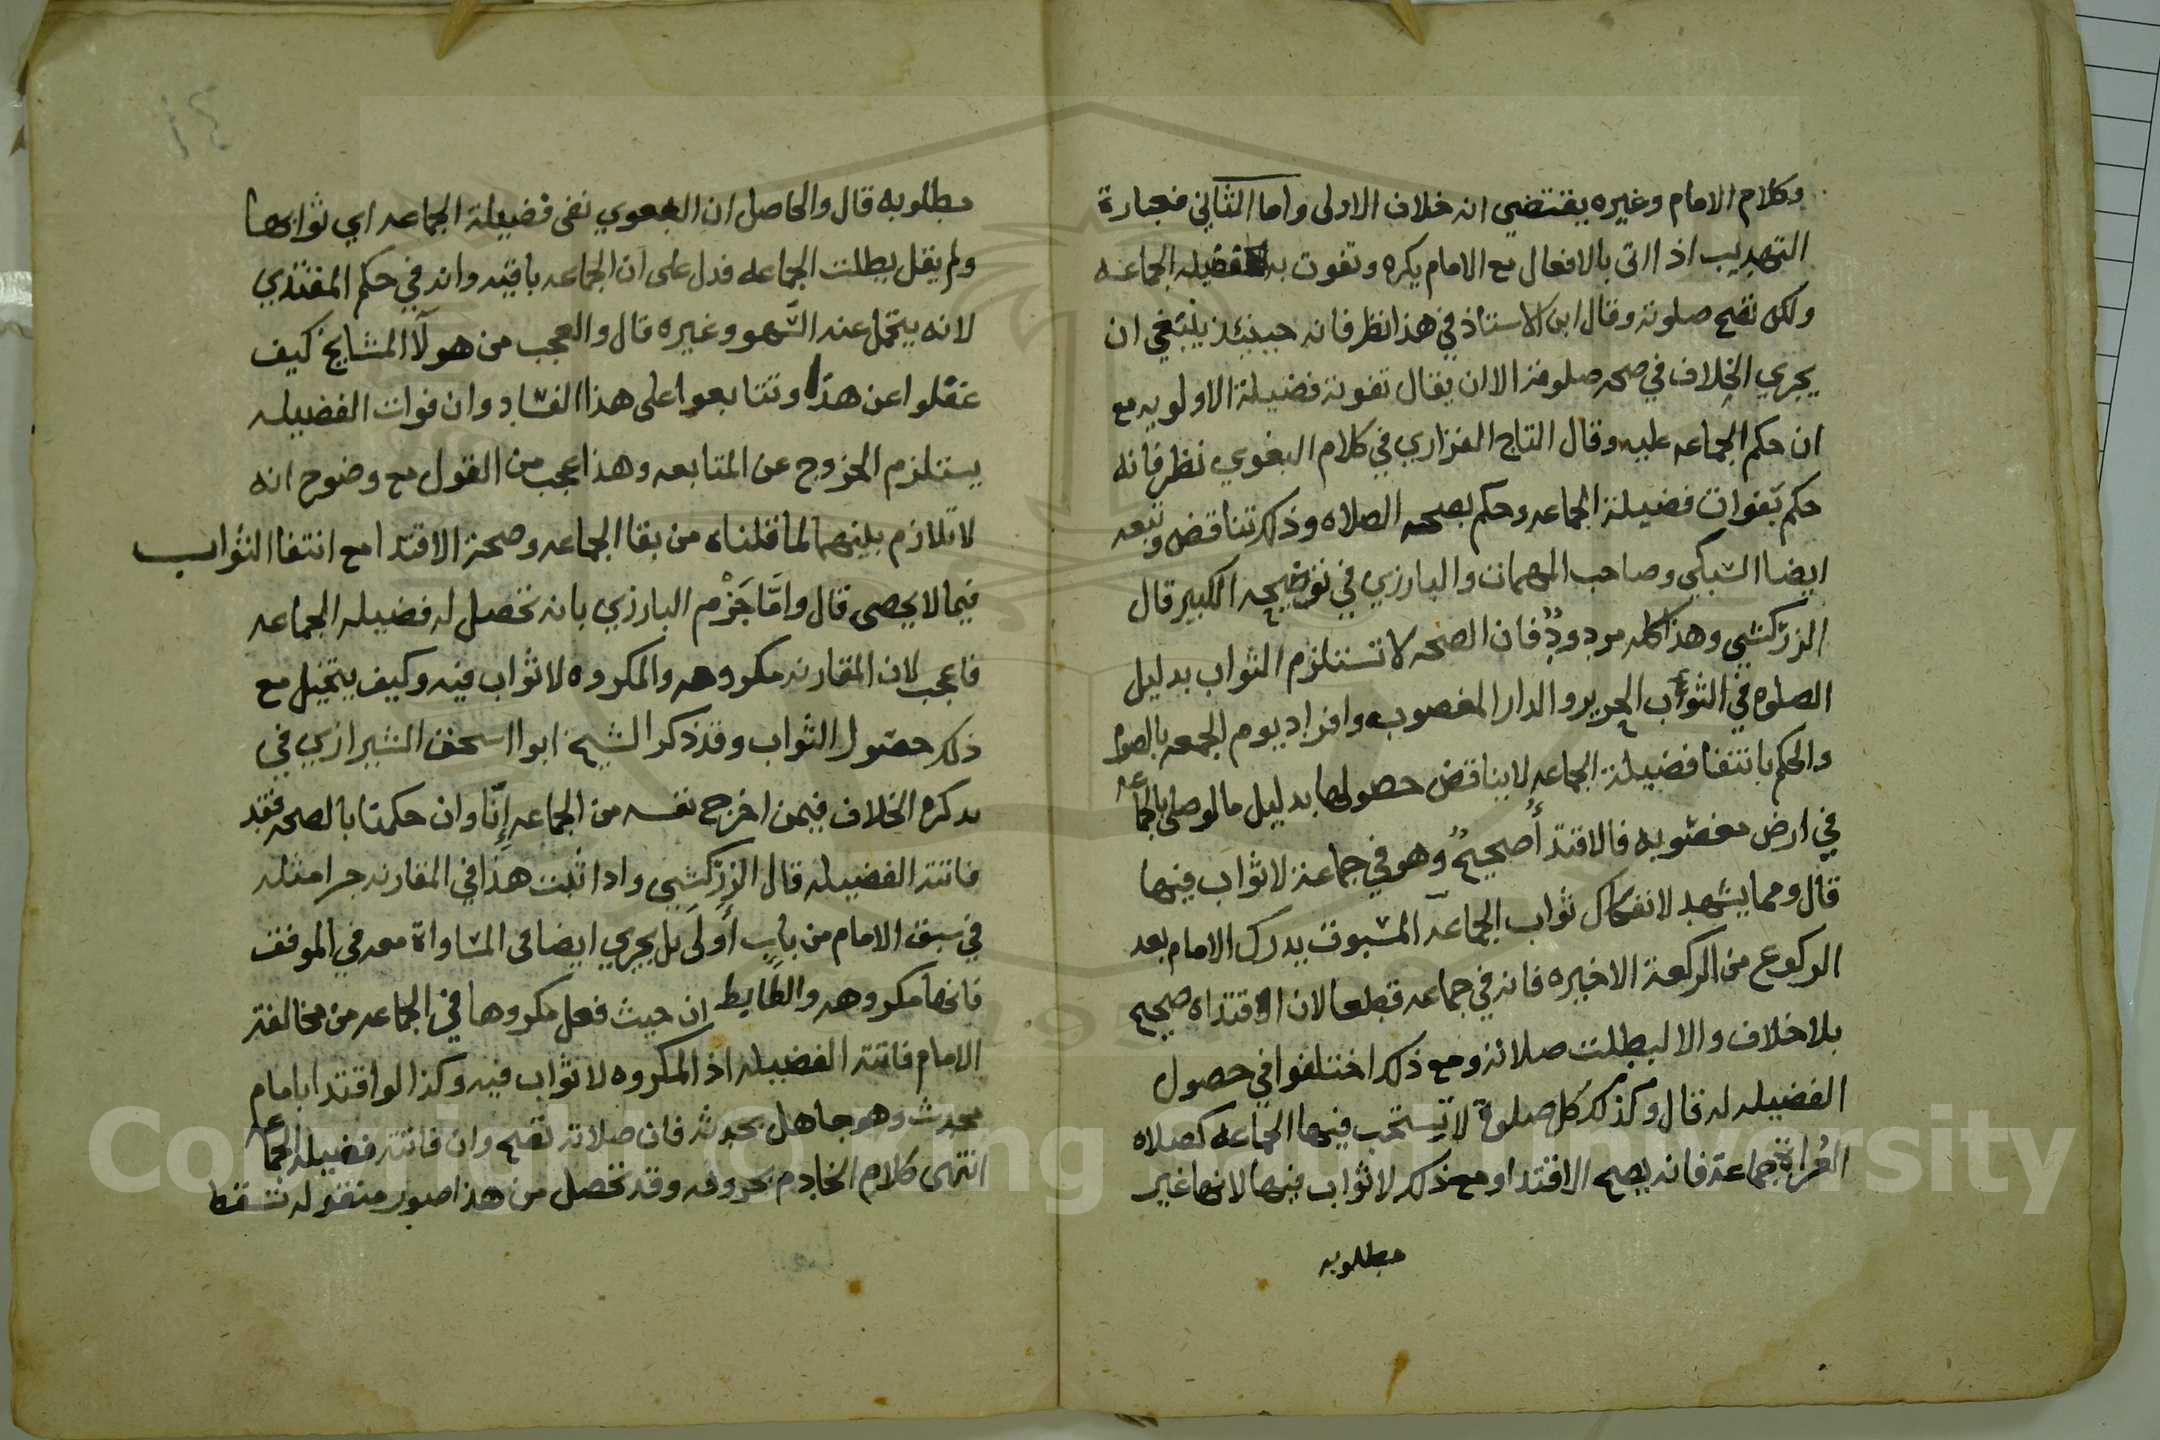 وكلام الامام وغيره يقتضي انه خلاف الاولى واما الثاني فعبارة
التهديب اذا اتى بالافعال مع الامام يكره وتفوت به فضيله الجماعه
ولكن تصح صلوته وقال ابن الاستاذ في هذا نظر فانه حينئذ ينبغي ان
يجري الخلاف في صحه صلوته الا ان يقال تفوته فضيلة الاولويه مع
ان حكم الجماعه عليه وقال التاج الفزاري في كلام البغوي نظر فانه
حكم بفوات فضيلة الجماعه وحكم بصحه الصلاه وذلك تناقض وتبعه
ايضا السبكي وصاحب المهمات والبارزي في توضيحه الكبير قال
الزركشي وهذا كله مردود فان الصحه لا تستلزم الثواب بدليل
الصلوه في الثوب الحرير والدار المغصوبه وافراد يوم الجمعه بالصوم
والحكم بانتفا فضيلة الجماعه لا يناقض حصولها بدليل ما لو صلى بالجماعه
في ارض مغصوبه فالاقتدا صحيح وهو في جماعة لا ثواب فيها
قال ومما يشهد لانفكاك ثواب الجماعه المسبوق يدرك الامام بعد
الركوع من الركعة الاخيره فانه في جماعه قطعا لان الاقتداه صحيح
بلا خلاف والا لبطلت صلاته ومع ذلك اختلفوا في حصول
الفضيله له قال وكذلك كل صلوة لا تستحب فيها الجماعه كصلاه
العراة جماعة فانه يصح الاقتدا ومع ذلك لا ثواب فيها لانها غير
مطلوبه
١٤
مطلوبه قال والحاصل ان البغوي نفى فضيلة الجماعه اي ثوابها
ولم يقل بطلت الجماعه فدل على ان الجماعه باقيه وانه في حكم المقتدي
لانه يتحمل عنه السهو وغيره قال والعجب من هولآ المشايخ كيف
غفلوا عن هذا وتتابعوا على هذا الفساد وان فوات الفضيله
يستلزم الخروج عن المتابعه وهذا عجب من القول مع وضوح انه
لا تلازم بينهما لما قلناه من بقا الجماعه وصحة الاقتدا مع انتفا الثواب
فيما لا يحصى قال وامّا جَزْم البارزي بانه تحصل له فضيله الجماعه
فاعجب لان المقارنه مكروهه والمكروه لا ثواب فيه وكيف يتخيل مع
ذلك حصول الثواب وقد ذكر الشيخ ابوا اسحق الشيرازي في
تذكره الخلاف فيمن اخرج نفسه من الجماعه إنّا وان حكمنا بالصحه فقد
فاتته الفضيله قال الزركشي واذا ثبت هذا في المقارنه جرا مثله
في سبق الامام من باب أولى بل يجري ايضا في المساواة معه في الموقف
فانها مكروهه والضابط ان حيث فعل مكروها في الجماعه من مخالفة
الامام فاتته الفضيله اذ المكروه لا ثواب فيه وكذا لو اقتدا بامام
محدث وهو جاهل بحدثه فان صلاته تصح وان فاتته فضيله الجماعه
انتهى كلام الخادم بحروفه وقد تحصل من هذا صور منقوله تسقط
Copyright © King Saud University